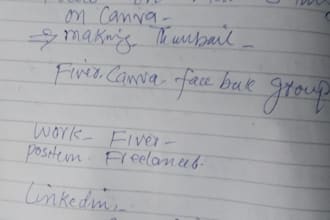 on Canva -
⇒ making Thumbail -
Fiver. Canva - face buk group
Work - Fiver -
positem. Freelancer.
Linkedin,